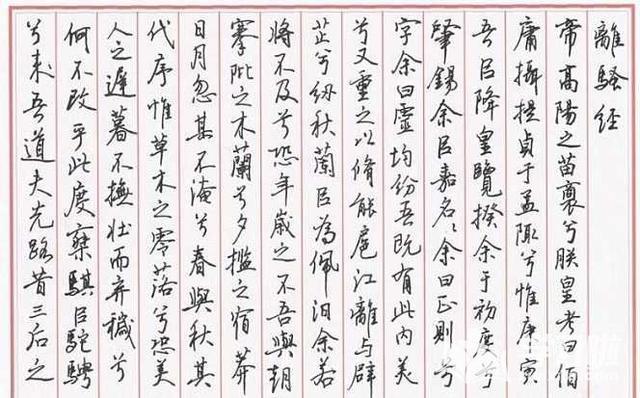 離騷经
帝高陽之苗裔兮朕皇考曰伯
庸攝提貞于孟陬兮惟庚寅
吾㠯降皇覽揆余于初度兮
肇錫余㠯嘉名〻余曰正則兮
字余曰靈均份吾既有此内美
兮又重之以脩能扈江離与辟
芷兮纫秋蘭㠯為佩汩余若
将不及兮恐年歲之不吾與朝
搴阰之木蘭兮夕擥之宿莽
日月忽其不淹兮春與秋其
代序惟草木之零落兮恐美
人之遲暮不撫壮而弃穢兮
何不改乎此度椉騏㠯駝騁
兮来吾道夫先路昔三后之